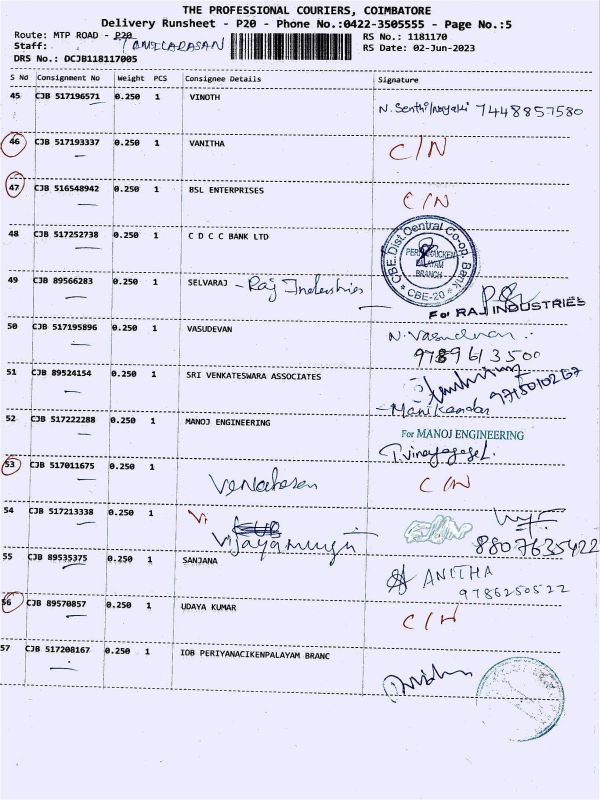 THE PROFESSIONAL COURIERS, COIMBATORE
Delivery Runsheet - P20 - Phone No.:0422-3505555 - Page No.:5
Route: MTP ROAD - P20 RS No.: 1181170
Staff: TAMILARASAN RS Date: 02-Jun-2023
DRS No.: DCJB118117005
S No Consignment No Weight PCS Consignee Details Signature
45 CJB 517196571 0.250 1 VINOTH N. Senthilnayaki 7448857580
46 CJB 517193337 0.250 1 VANITHA C/N
47 CJB 516548942 0.250 1 BSL ENTERPRISES C/N
48 CJB 517252738 0.250 1 C D C C BANK LTD
CBE.Dist.Central Co-op. Bank
BRANCH
CBE-20
49 CJB 89566283 0.250 1 SELVARAJ - Raj Industries
For RAJ INDUSTRIES
50 CJB 517195896 0.250 1 VASUDEVAN N. Vasudevan
9789613500
51 CJB 89524154 0.250 1 SRI VENKATESWARA ASSOCIATES
- Manikandan 9715010267
52 CJB 517222288 0.250 1 MANOJ ENGINEERING For MANOJ ENGINEERING
53 CJB 517011675 0.250 1 Venkatesan C/N
54 CJB 517213338 0.250 1 Vi
Vijayamurugan 8807635422
55 CJB 89535375 0.250 1 SANJANA ANITHA
9786250522
56 CJB 89570857 0.250 1 UDAYA KUMAR C/N
57 CJB 517208167 0.250 1 IOB PERIYANACIKENPALAYAM BRANC